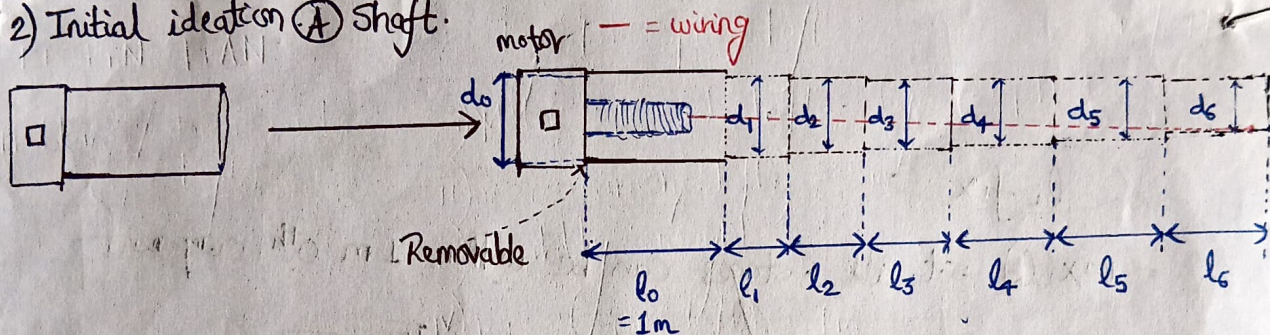 2) Initial ideation Ⓐ Shaft.
motor
— = wiring
d₀
d₁ d₂ d₃ d₄ d₅ d₆
Removable
l₀ l₁ l₂ l₃ l₄ l₅ l₆
= 1m